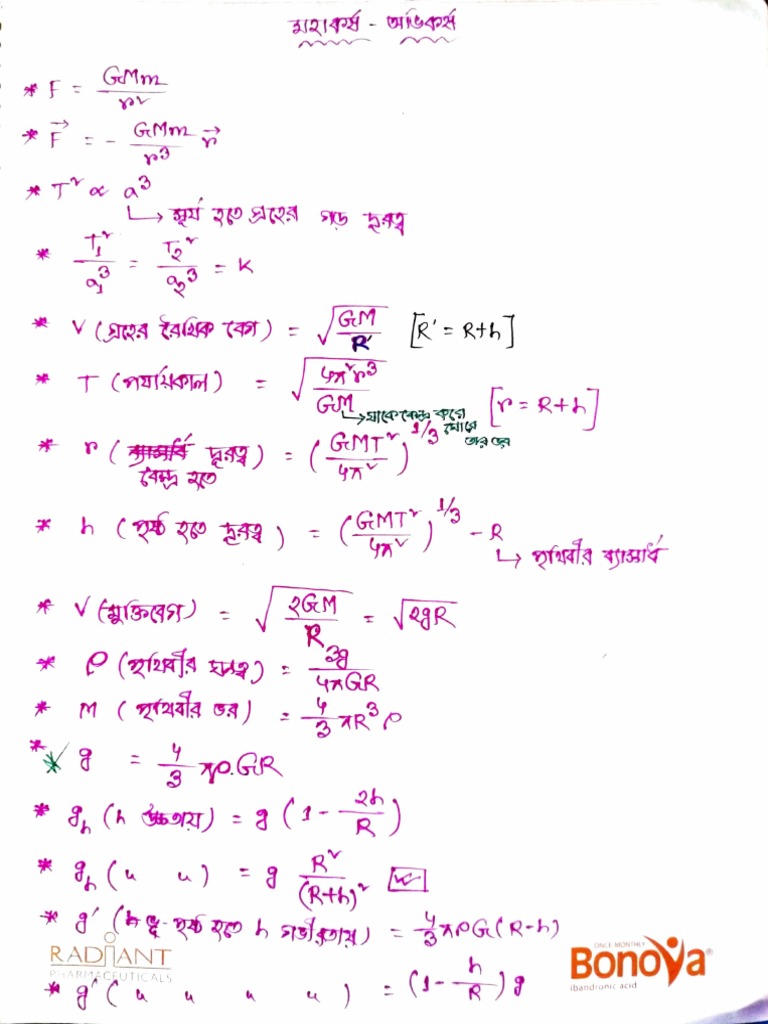 মহাকর্ষ - অভিকর্ষ
* F = GMm / r²
* F⃗ = - GMm / r³ r⃗
* T² ∝ a³
↳ সূর্য হতে গ্রহের গড় দূরত্ব
* T₁² / a₁³ = T₂² / a₂³ = K
* V (গ্রহের রৈখিক বেগ) = √(GM / R') [R' = R+h]
* T (পর্যায়কাল) = √(4π²r³ / GM) [r = R+h]
↳ যাকে কেন্দ্র করে ঘোরে তার ভর
* r (দূরত্ব) = (GMT² / 4π²)^1/3
কেন্দ্র হতে
* h (পৃষ্ঠ হতে দূরত্ব) = (GMT² / 4π²)^1/3 - R
↳ পৃথিবীর ব্যাসার্ধ
* V (মুক্তিবেগ) = √(2GM / R) = √2gR
* ρ (পৃথিবীর ঘনত্ব) = 3g / 4πGR
* M (পৃথিবীর ভর) = 4/3 πR³ρ
* g = 4/3 πρ.GR
* gₕ (h উচ্চতায়) = g (1 - 2h/R)
* gₕ (u u) = g R² / (R+h)²
* g' (পৃষ্ঠ হতে h গভীরতায়) = 4/3 πρG(R-h)
RADIANT
PHARMACEUTICALS
ONCE MONTHLY
Bonova®
ibandronic acid
* g' (u u u u) = (1 - h/R) g